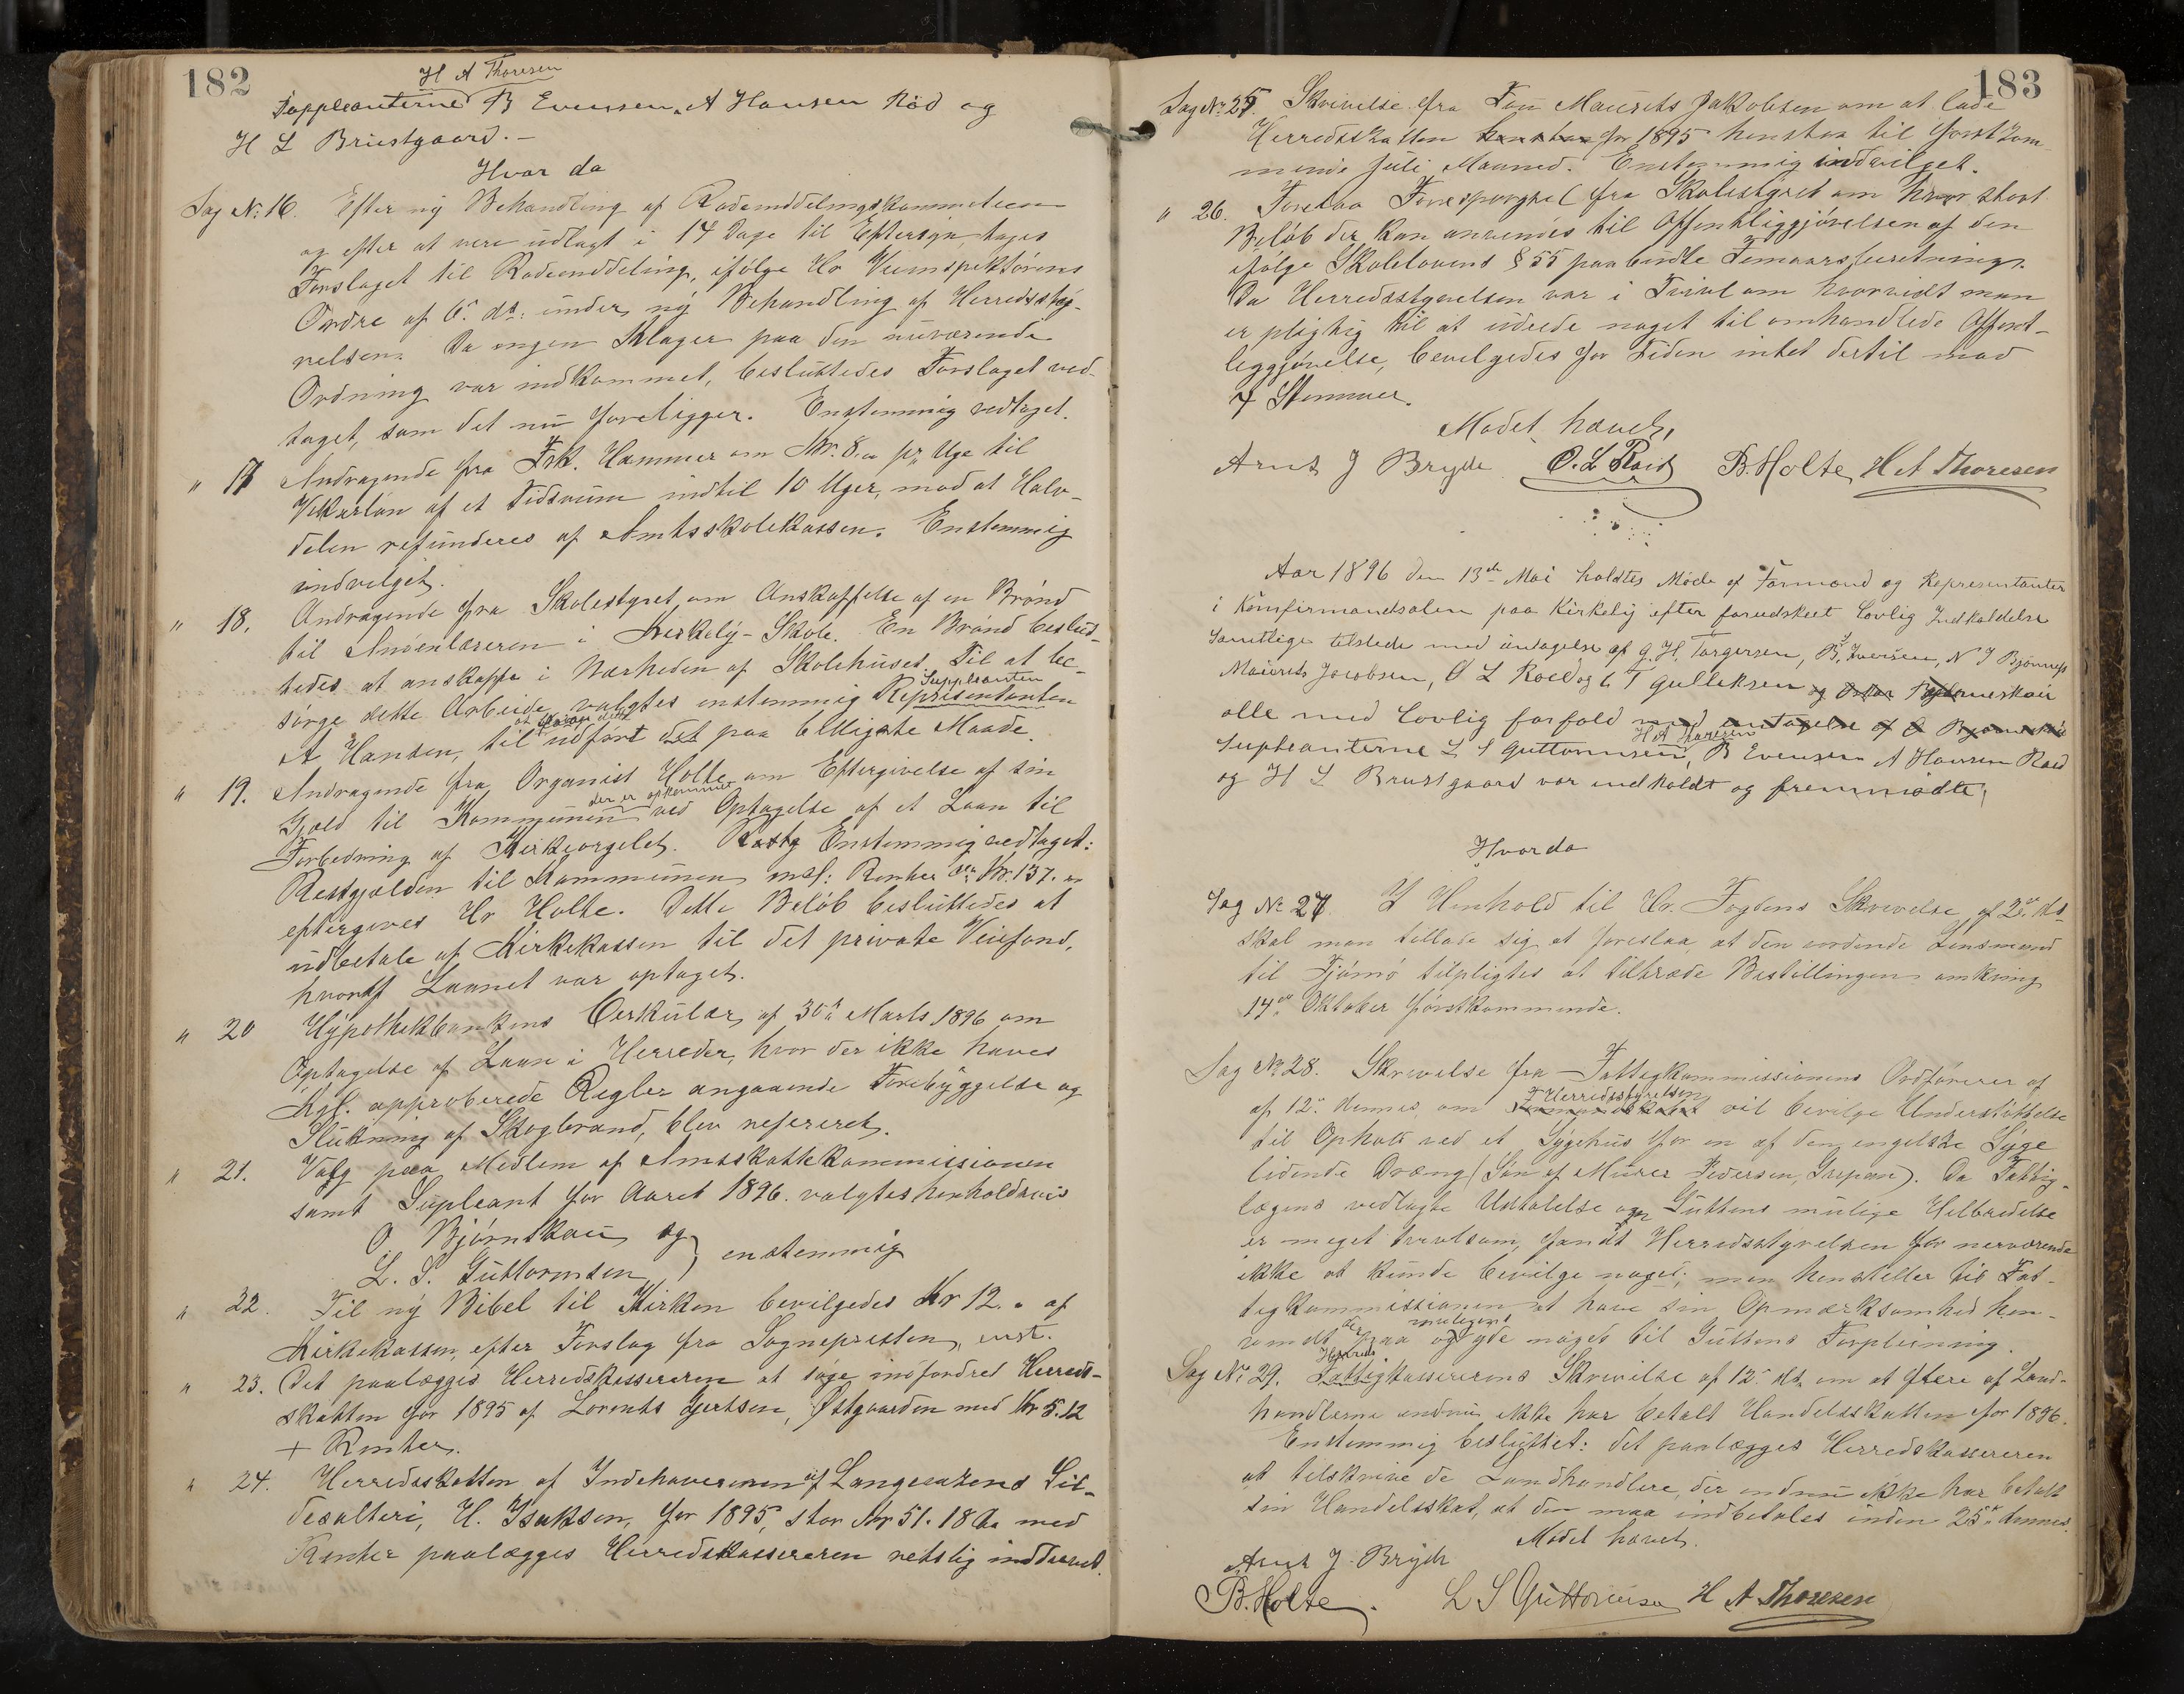 182
H A Thoresen
Suppleanterne B Evensen, A Hansen Röd og
H L Brustgaard. –
Hvor da
Sag N: 16. Efter ny Behandling af Rodeinddelingskommiteen
og efter at være udlagt i 14 Dage til Eftersyn, toges
Forslaget til Rodeinddeling, ifölge Hr Veiinspektörens
Ordre af 6. ds: under ny Behandling af Herredssty-
relsen. Da ingen Klager paa den nuværende
Ordning var indkommet, besluttedes Forslaget ved-
taget, som det nu foreligger. Enstemmig vedtaget.
" 17 Andragende fra Frk. Hammer om Kr. 8.00 pr. Uge til
Vikarlön af et Tidsrum indtil 10 Uger, mod at Halv-
delen refunderes af Amtsskolekassen. Enstemmig
indvilget.
" 18. Andragende fra Skolestyret om Anskaffelse af en Brönd
til Andenlæreren i Kirkely-Skole. En Brönd beslut-
tedes at anskaffe i Nærheden af Skolehuset. Til at be-
sörge dette Arbeide valgtes enstemmig Suppleanten Repræsentanten
A Hansen, til at faa dette udfört det paa billigste Maade.
" 19. Andragende fra Organist Holte om Eftergivelse af sin
Gjæld til Kommunen der er opkommet ved Optagelse af et Laan til
Forbedring af Kirkeorgelet. Enstemmig vedtaget:
Restgjælden til Kommunen incl: Renter Kr. 137.00
eftergives Hr Holte. Dette Belöb besluttedes at
udbetale af Kirkekassen til det private Veiefond,
hvoraf Laanet var optaget.
" 20 Hypothekbankens Cirkulær af 30te Marts 1896 om
Optagelse af Laan i Herreder, hvor der ikke haves
Kgl. approberede Regler angaaende Forebyggelse og
Slukning af Skogbrand, blev refereret.
" 21. Valg paa Medlem af Amtsskattekommissionen
samt Supleant for Aaret 1896. valgtes henholdsvis
O Bjørnskau og
L. S. Guttormsen } enstemmig
" 22. Til ny Bibel til Kirken bevilgedes Kr 12. " af
Kirkekassen, efter Forslag fra Sognepresten, enst.
" 23. Det paalægges Herredskassereren at söge indfordret Herreds-
skatten for 1895 af Lorents Gjertsen, Østgaarden med Kr 5.12
+ Renter.
" 24. Herredsskatten af Indehaveren af Langeaakens Sil-
desalteri, H. Isaksen, for 1895, stor Kr 51.18 Øre med
Renter paalægges Herredskassereren retslig inddrevet.
183
Sag No 25. Skrivelse fra Fru Maurits Jakobsen om at lade
Herredsskatten henstaa for 1895 henstaa til förstkom-
mende Juli Maaned. Enstemmig indvilget.
" 26. Forelaa Forespörgsel fra Skolestyret om hvor stort
Belöb der kan anvendes til Offentliggjörelsen af den
ifölge Skolelovens § 55 paabudte Femaarsberetning.
Da Herredsstyrelsen var i Tvivl om hvorvidt man
er pligtig til at udrede noget til omhandlede Offent-
liggjörelse, bevilgedes for Tiden intet dertil mod
4 Stemmer.
Mödet hævet,
Arnt J Bryde O. L. Röid B. Holte H A Thoresen
Aar 1896 den 13de Mai holdtes Møde af Formænd og Representanter
i Konfirmandsalen paa Kirkely efter forudskeet lovlig Indkaldelse
Samtlige tilstede med undtagelse af G. H. Torgersen, B. Iversen, N J Bjönnes
Maurits Jacobsen, O L Roed og C. T Gulleksen og Oskar Bjørneskau
alle med lovlig forfald med undtagelse af O Bjørneskau
Supleanterne L S Guttormsen, H A Thoresen B Evensen A Hansen Rød
og H L Brustgaard var indkaldt og fremmødte,
Hvorda
Sag No 27 I Henhold til Hr. Fogdens Skrivelse af 2den ds
skal man tillade sig at foreslaa, at den vordende Lensmand
til Tjømø tilpligtes at tiltræde Bestillingen omkring
14de Oktober förstkommende.
Sag No 28. Skrivelse fra Fattigkommissionens Ordförerer af
af 12te dennes, om Herredsstyrelsen vil bevilge Understöttelse
til Ophold ved et Sygehus for en af den engelske Syge
lidende Dræng (Sön af Murer Pedersen, Grepan). Da Fattig-
lægens vedlagte Udtalelse om Guttens mulige Helbredelse
er meget tvivlsom, fandt Herredsstyrelsen for nærværende
ikke at kunde bevilge noget; men henstiller til Fat-
tigkommissionen at have sin Opmærksomhed hen-
vendt paa at muligens yde noget til Guttens Forpleining.
Sag No 29. Herreds Fattigkassererens Skrivelse af 12te ds. om at flere af Land-
handlerne endnu ikke har betalt Handelsskatten for 1896.
Enstemmig besluttet: det paalægges Herredskassereren
at tilskrive de Landhandlere, der endnu ikke har betalt
sin Handelsskat, at den maa indbetales inden 25de dennes.
Mödet hævet.
Arnt J. Bryde
B. Holte. L S Guttormsen H A Thoresen